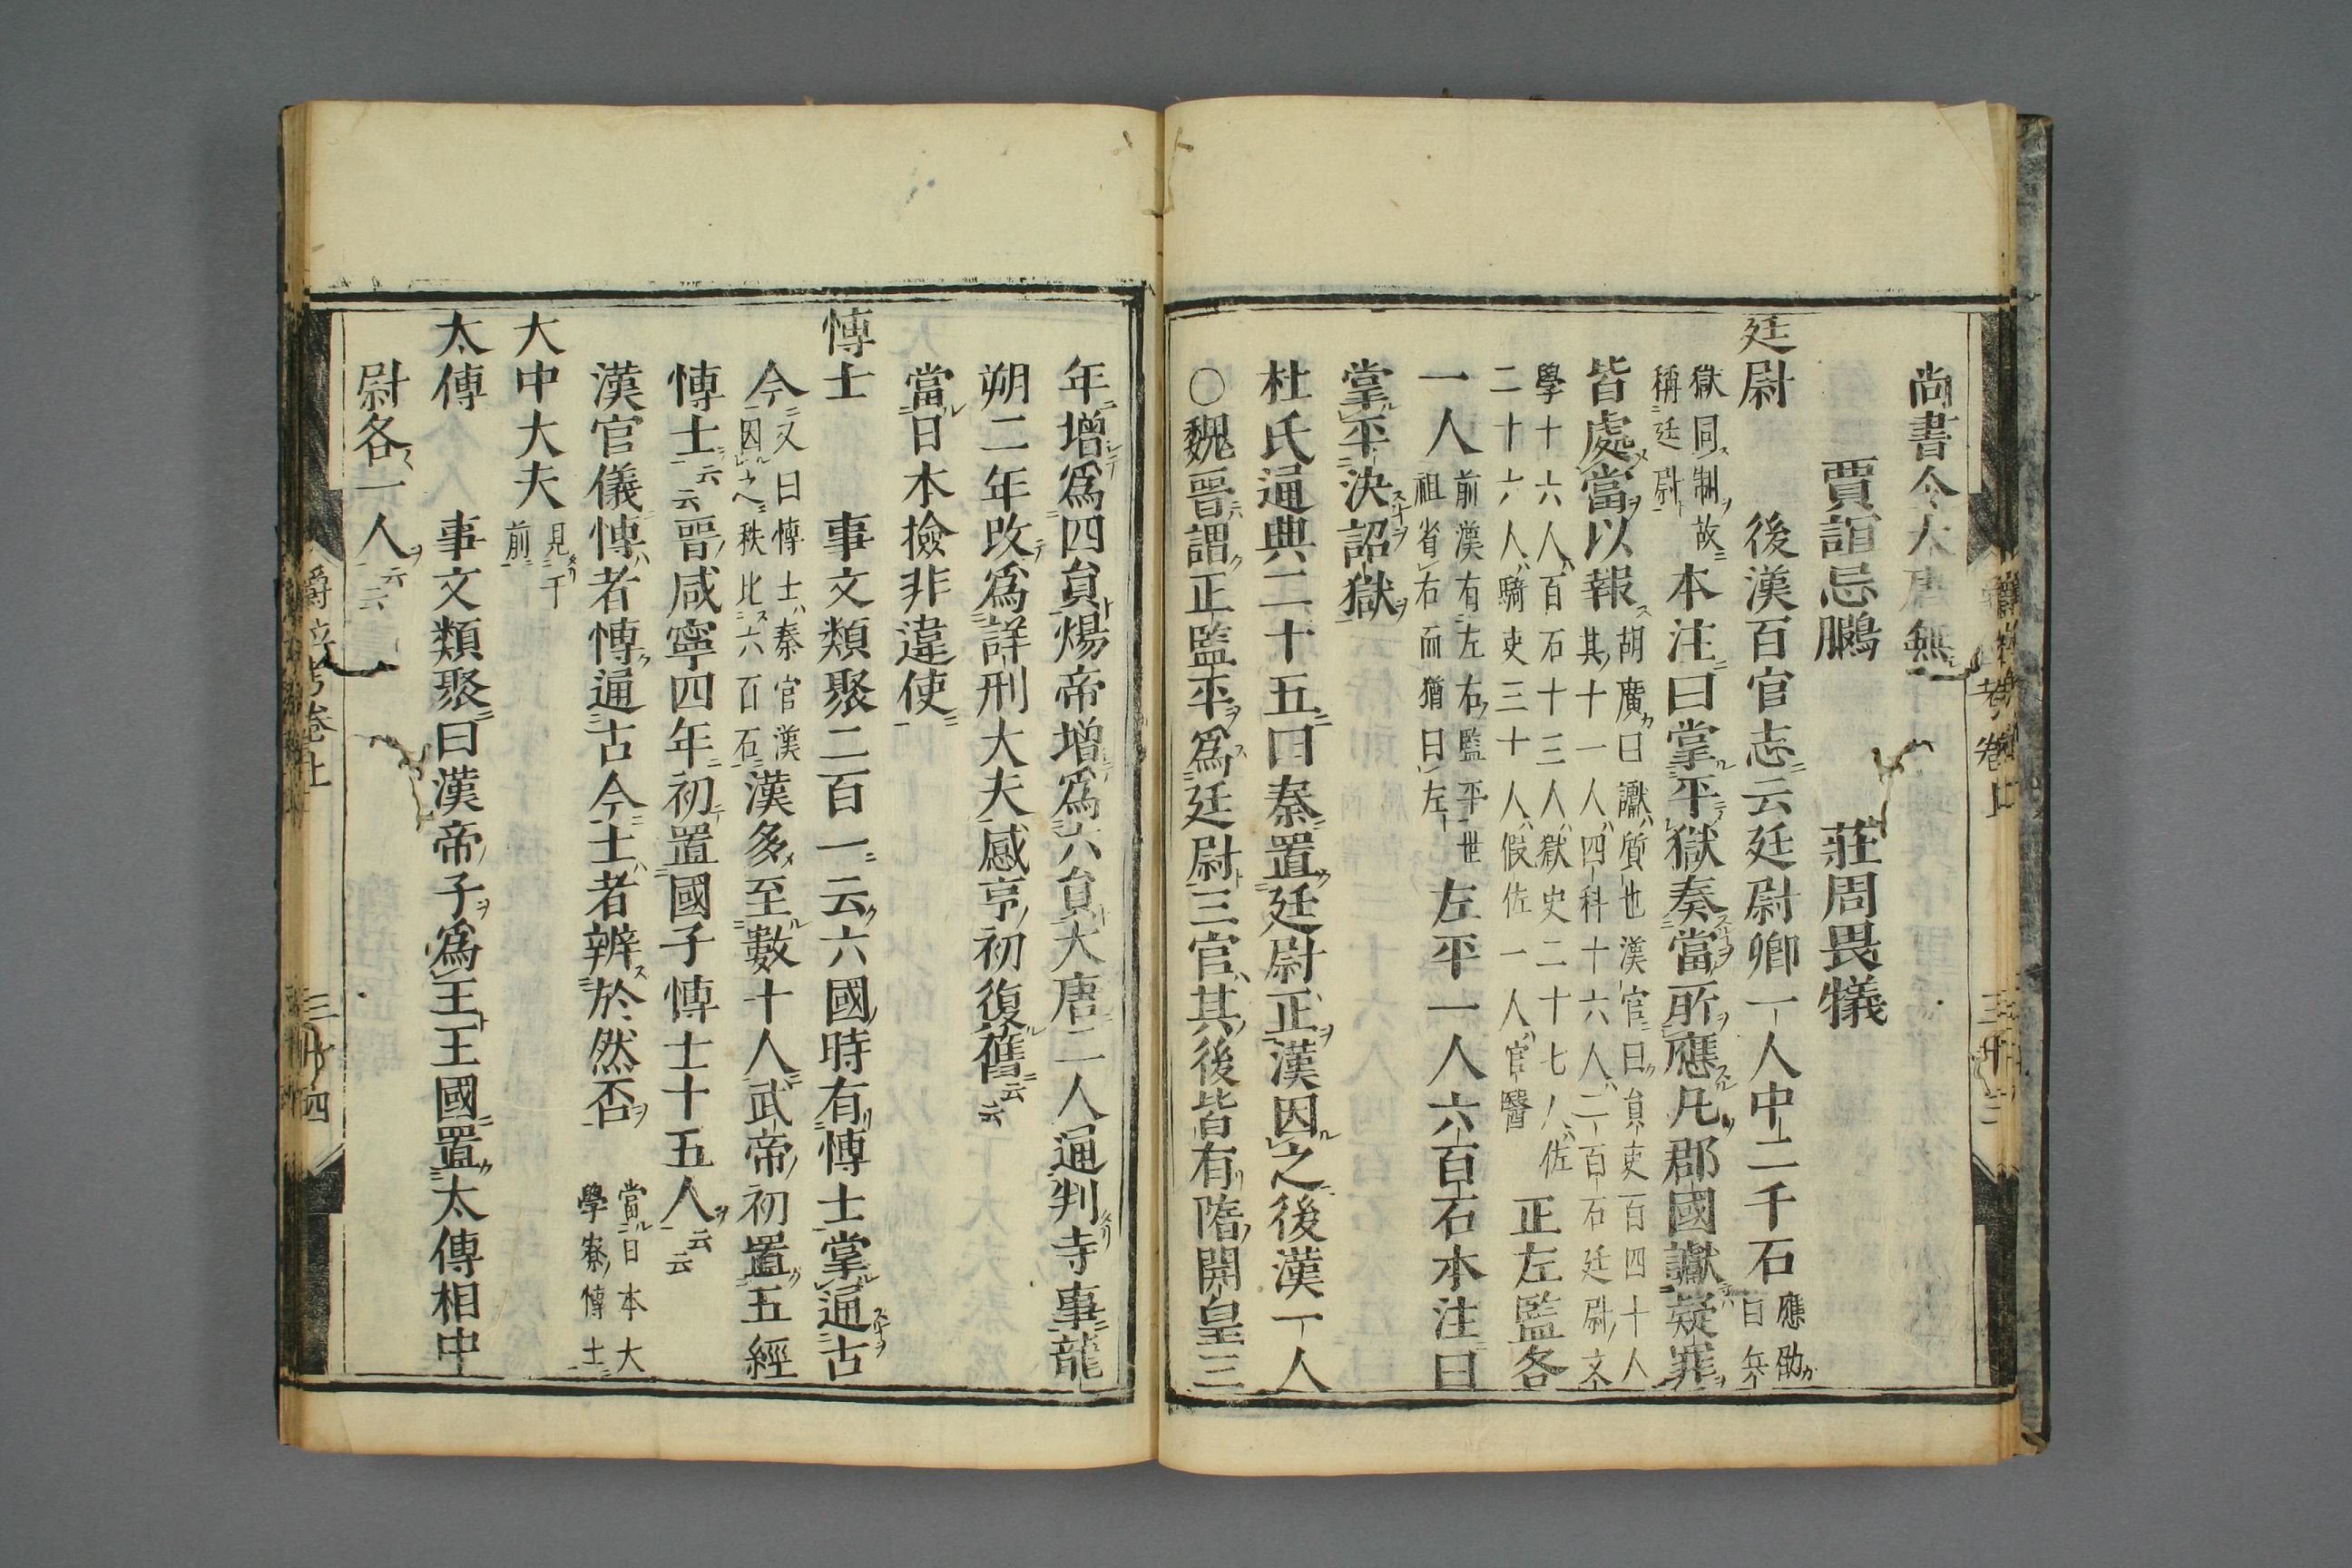 尚書令大唐無
賈誼忌鵩　莊周畏犧
廷尉　後漢百官志云廷尉卿一人中二千石應劭曰兵
獄同制故稱廷尉本注曰掌平獄奏當所應凡郡國讞疑罪
皆處當以報胡廣曰讞質也漢官曰員吏百四十人其十一人四科十六人二百石廷尉文
學十六人百石十三人獄史二十七人佐二十六人騎吏三十人假佐一人官醫正左監各
一人前漢有左右監平世祖省右而猶曰左左平一人六百石本注曰
掌平決詔獄
杜氏通典二十五曰秦置廷尉正漢因之後漢一人
○魏晉謂正監平爲廷尉三官其後皆有隋開皇三
年增爲四員煬帝增爲六員大唐二人通判寺事龍
朔二年改爲詳刑大夫咸亨初復舊云云
當日本撿非違使
博士　事文類聚二百一云六國時有博士掌通古
今又曰博士秦官漢因之秩比六百石漢多至數十人武帝初置五經
博士云云晉咸寧四年初置國子博士十五人云云
漢官儀博者博通古今士者辨於然否當日本大學寮博士
大中大夫見于前
太傅　事文類聚曰漢帝子爲王王國置太傅相中
尉各一人云云
爵位考卷上　三十四